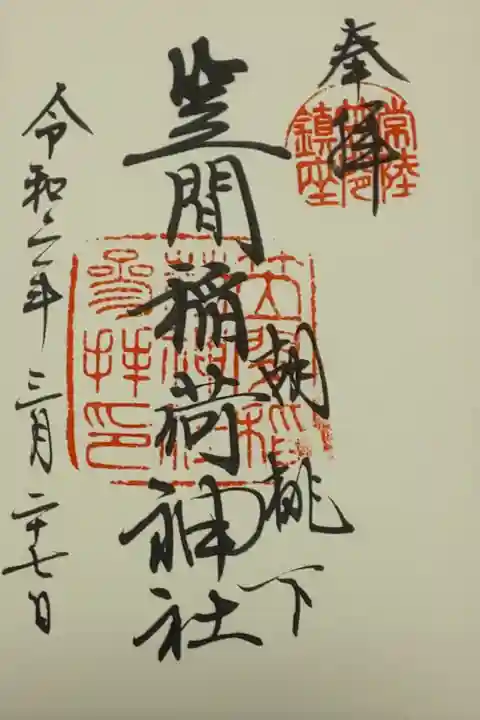 奉拝
常陸
笠間
鎮座
胡桃下
笠間稲荷神社
笠間稲
荷神社
参拝印
令和六年三月二十七日